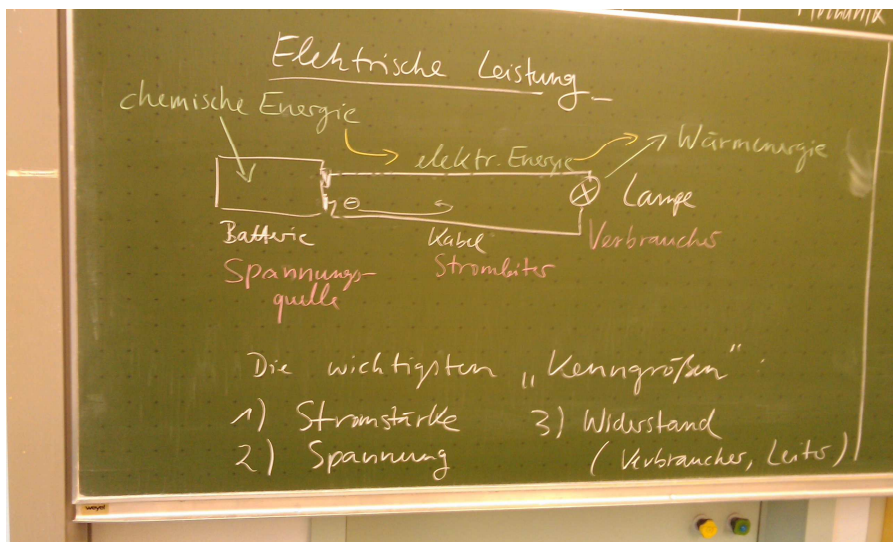 Elektrische Leistung
chemische Energie
elektr. Energie
Wärmenergie
⊖
Lampe
Batterie
Kabel
Verbraucher
Spannungs-
quelle
Stromleiter
Die wichtigsten „Kenngrößen“:
1) Stromstärke
3) Widerstand
2) Spannung
(Verbraucher, Leiter)
weyel